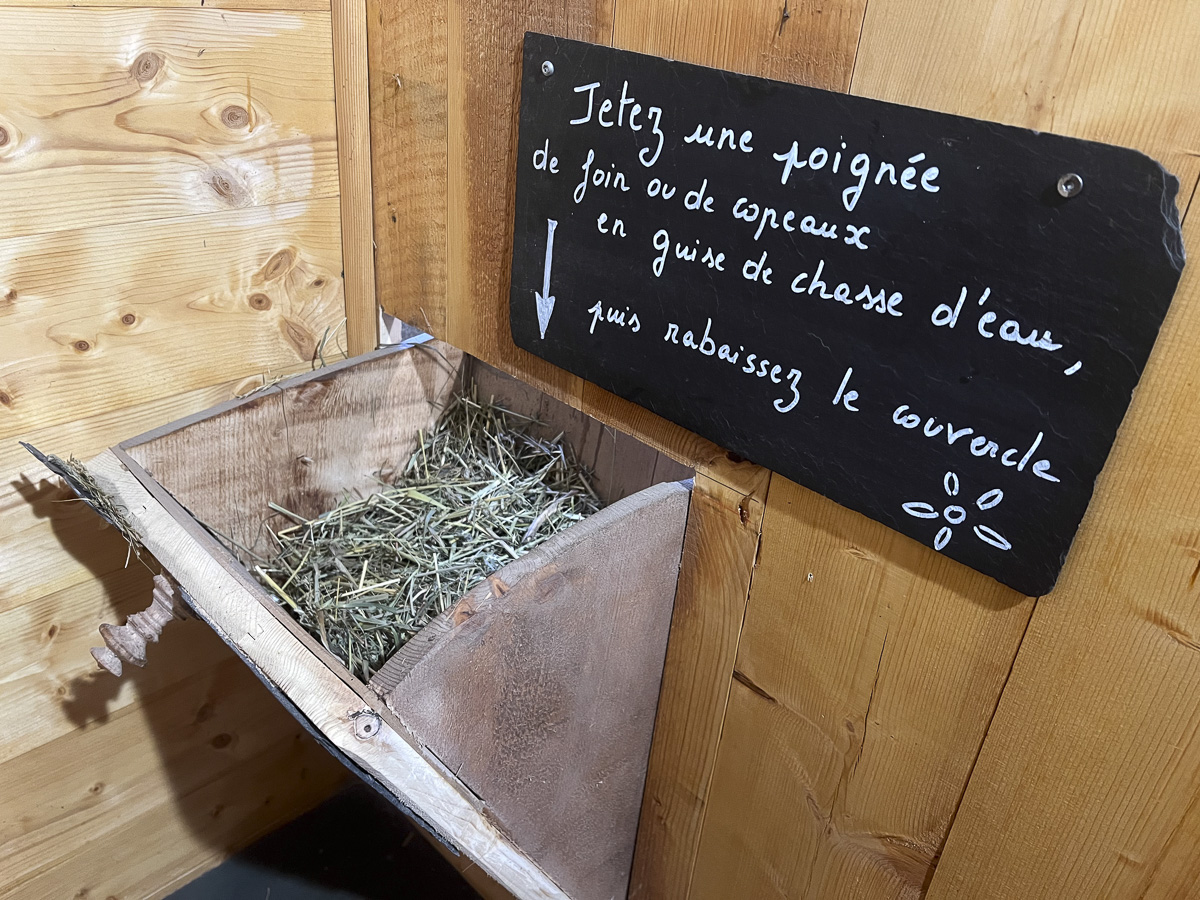 Jetez une poignée
de foin ou de copeaux
en guise de chasse d'eau,
puis rabaissez le couvercle